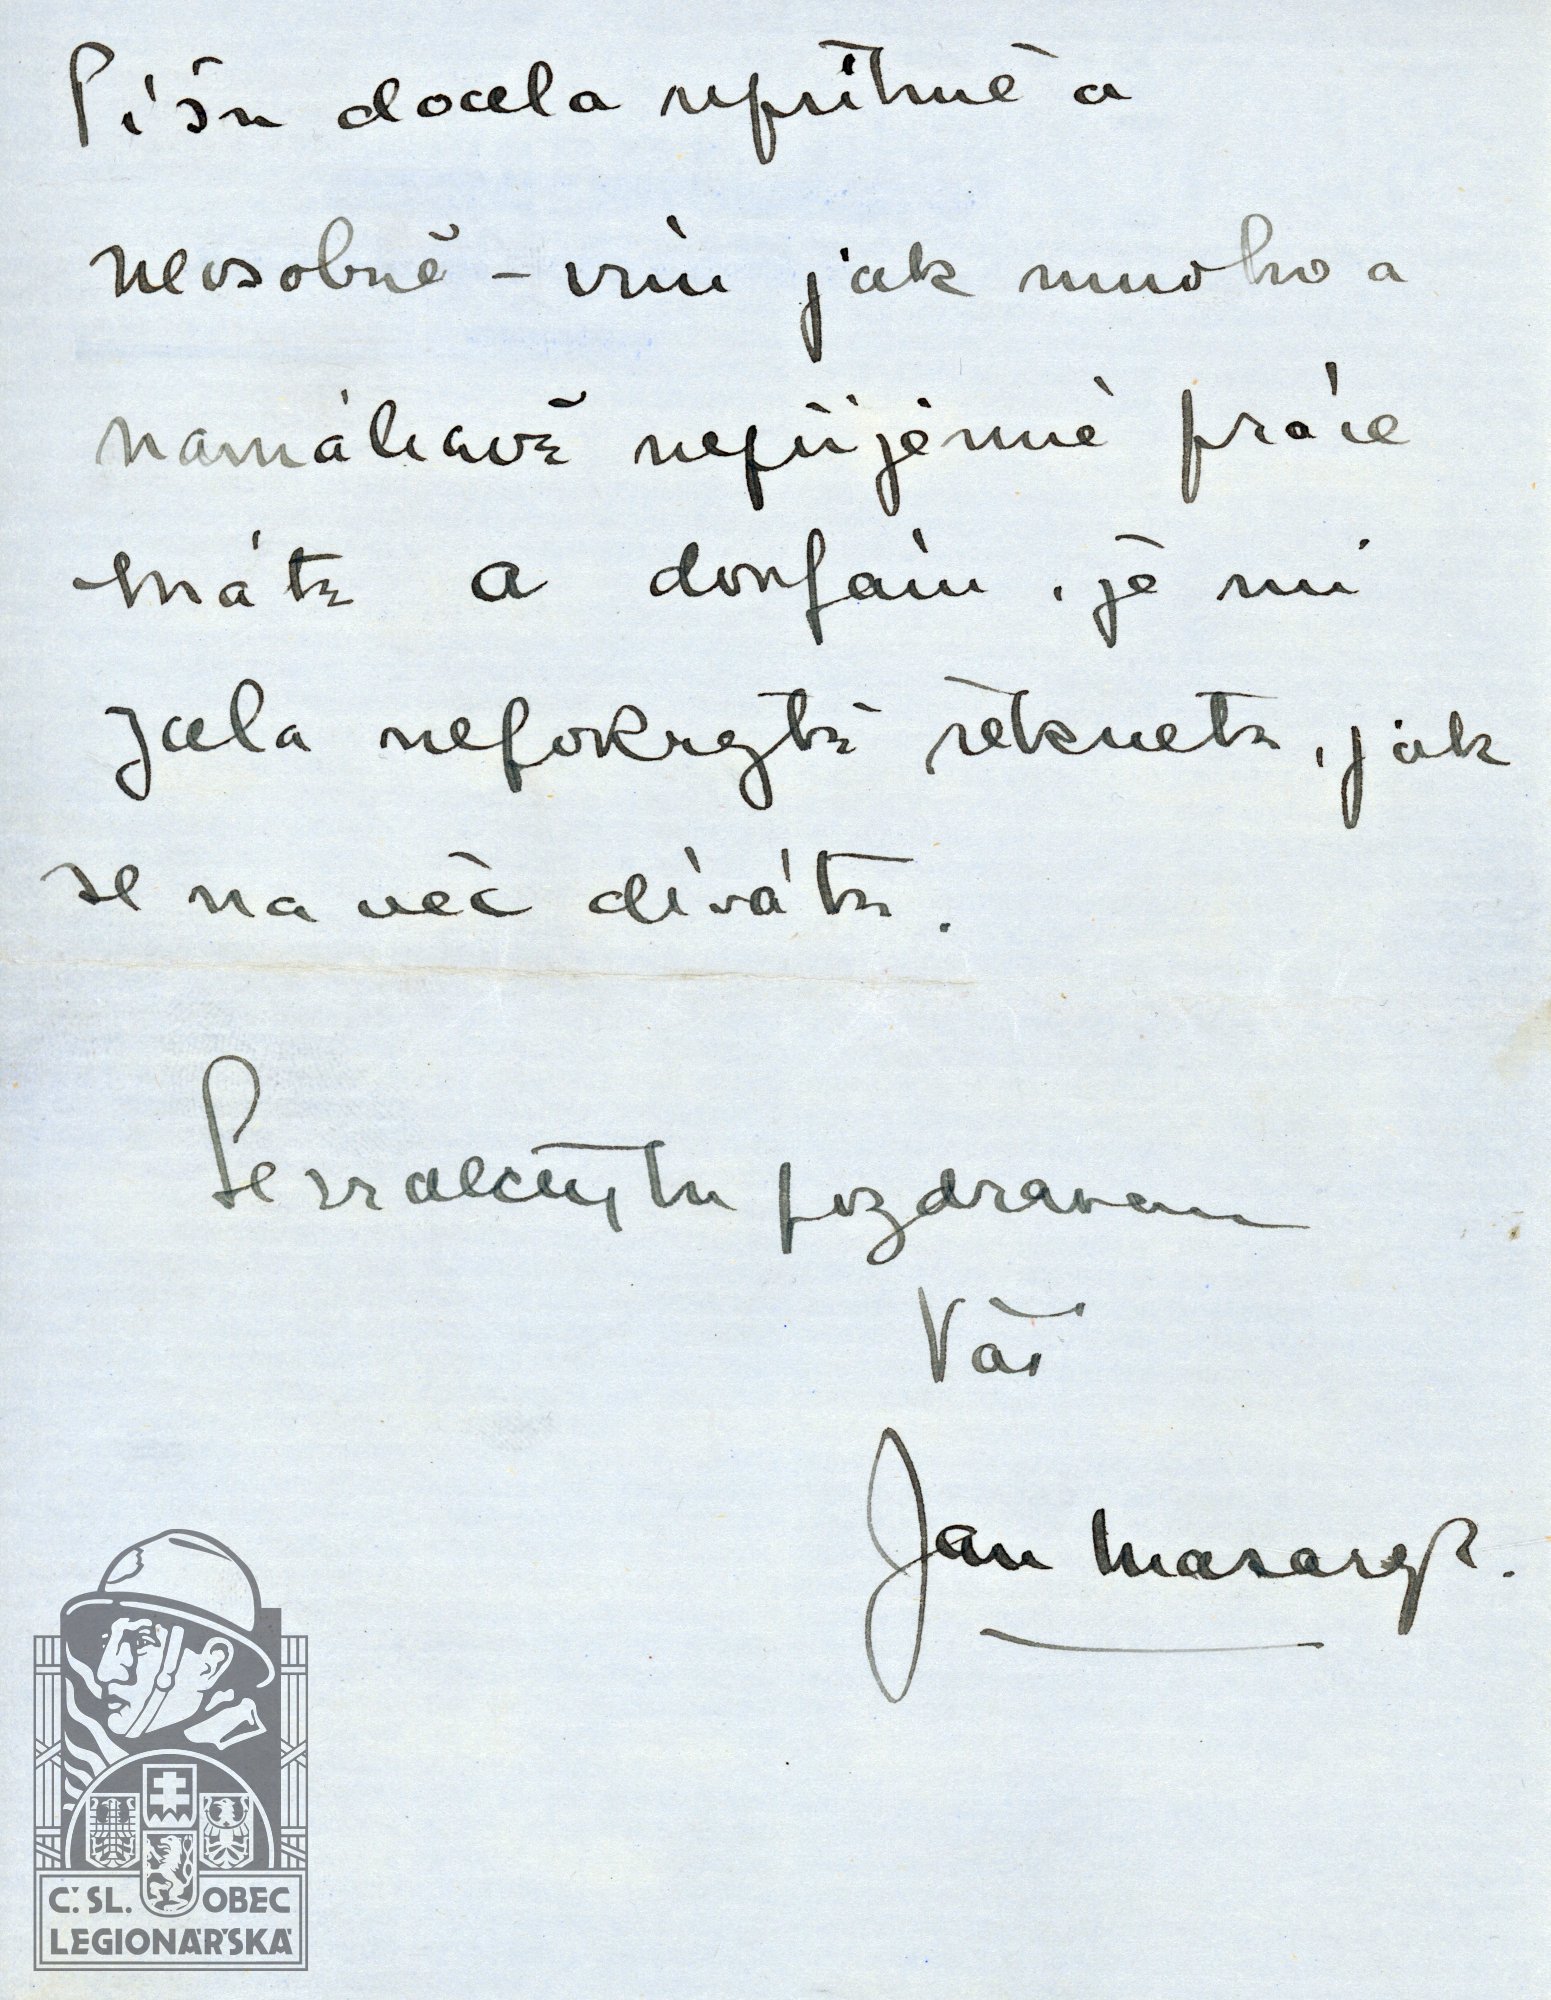 Píšu docela nepřítmě a
neosobně – vím jak mnoho a
namáhavé nepříjemné práce
máte a doufám, že mi
zcela nepokrytě řeknete, jak
se na věc díváte.
Se srdečným pozdravem
Váš
Jan Masaryk.
Č. SL. OBEC
LEGIONÁŘSKÁ